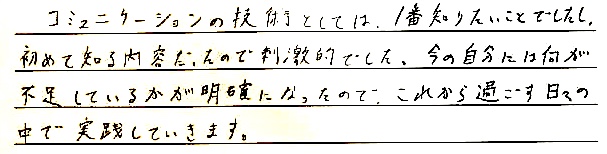 コミュニケーションの技術としては、1番知りたいことでしたし、
初めて知る内容だったので刺激的でした。今の自分には何が
不足しているかが明確になったので、これから過ごす日々の
中で実践していきます。